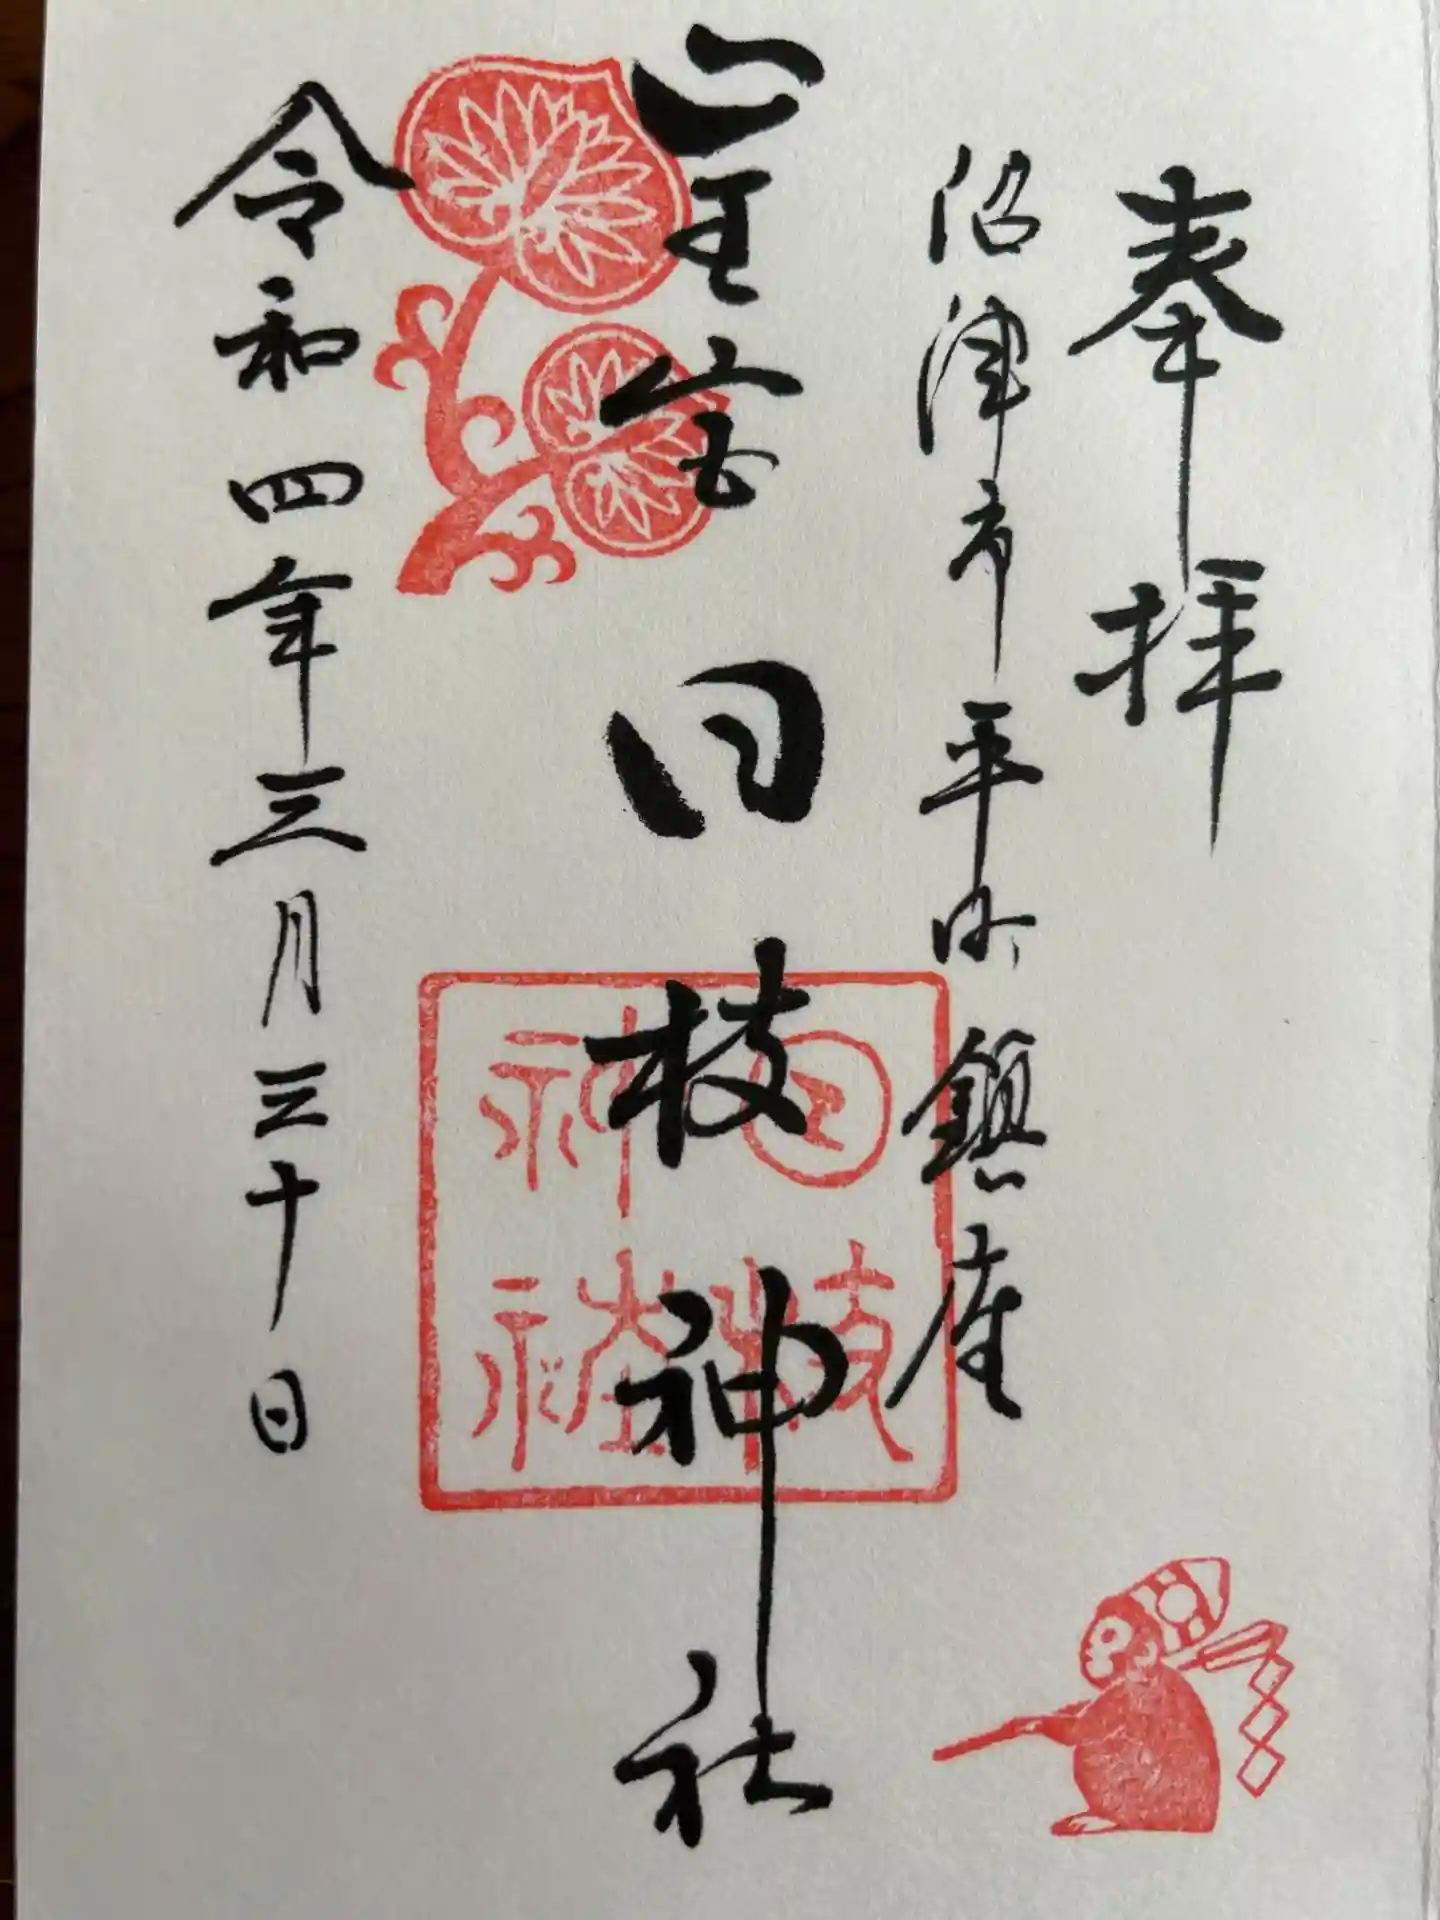 奉拝
沼津市平町鎮座
山王宮 日枝神社
令和四年三月三十日
日枝神社